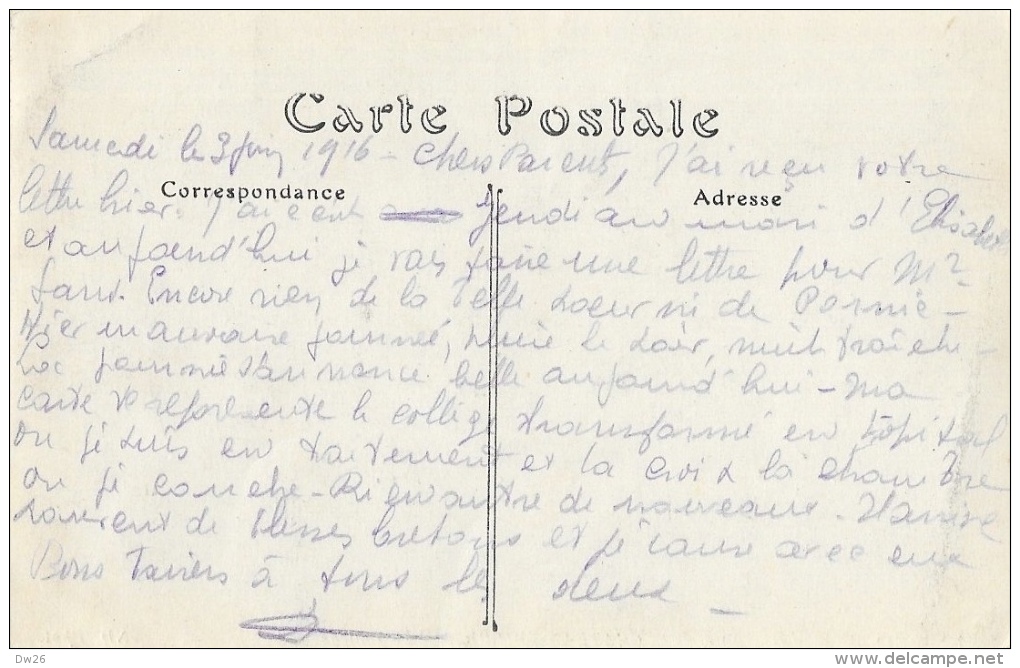 Carte Postale
Samedi le 3 juin 1916 - Chers Parents, J'ai reçu votre
Correspondance
Adresse
lettre hier. J'ai écrit jeudi au mari d'Elisabeth
et aujourd'hui je vais faire une lettre pour Mr
Encore rien de la Belle Soeur ni de Pornic -
Hier mauvaise journée, pluie le soir, nuit fraîche -
La journée s'annonce belle aujourd'hui - Ma
carte représente le collège transformé en hôpital
où je suis en traitement et la croix la chambre
où je couche - Rien autre de nouveau - Il arrive
souvent de blessés bretons et je cause avec eux
Bons baisers à tous les deux -
Dw26
www.delcampe.net